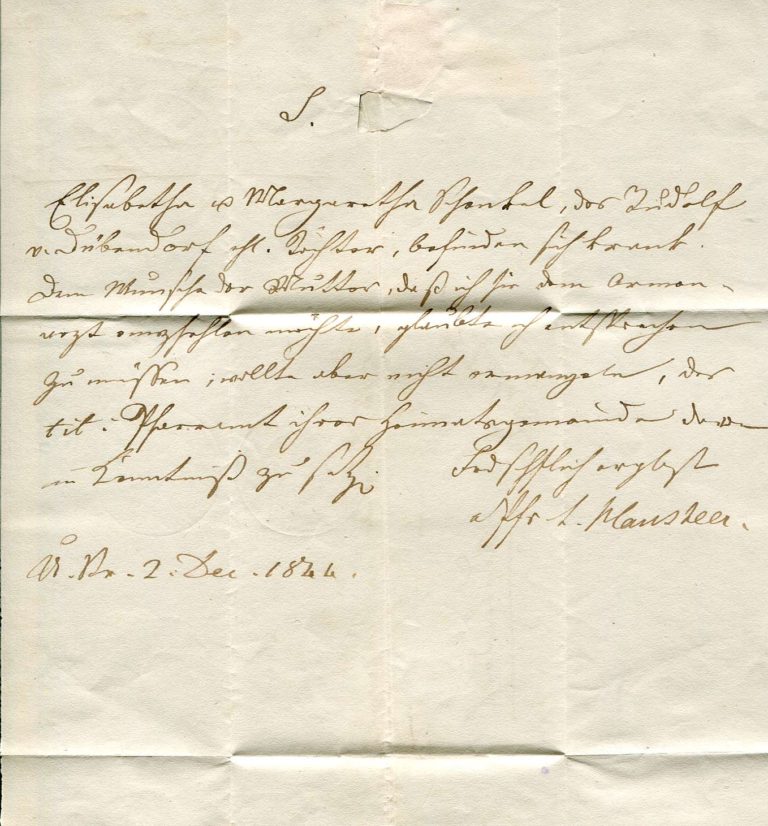 S.
Elisabetha & Margaretha Schenkel, des Rudolf
v. Dübendorf ehl. Töchter, befinden sich krank.
Dem Wunsche der Mutter, daß ich sie dem Armen-
arzt empfehlen möchte, glaubte ich entsprechen
zu müssen; wollte aber nicht ermangeln, das
tit. Pfarramt ihrer Heimatsgemeinde davon
in Kenntniß zu setzen
ergbst
2. Dec. 1844.